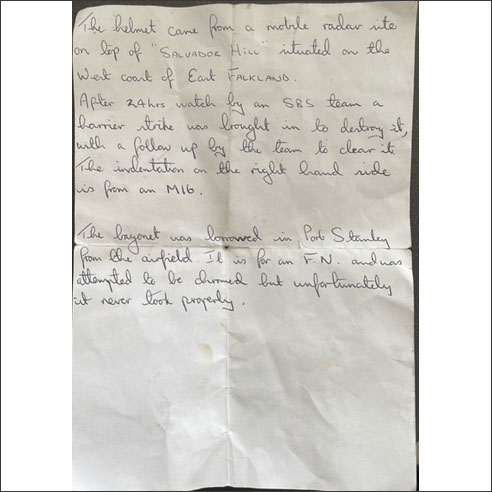 The helmet came from a mobile radar site
on top of "SALVADOR HILL" situated on the
West coast of East FALKLAND.
After 24hrs watch by an SBS team a
harrier strike was brought in to destroy it,
with a follow up by the team to clear it
The indentation on the right hand side
is from an M16.
The bayonet was borrowed in Port Stanley
from the airfield. It is for an F.N. and was
attempted to be chromed but unfortunately
it never took properly.